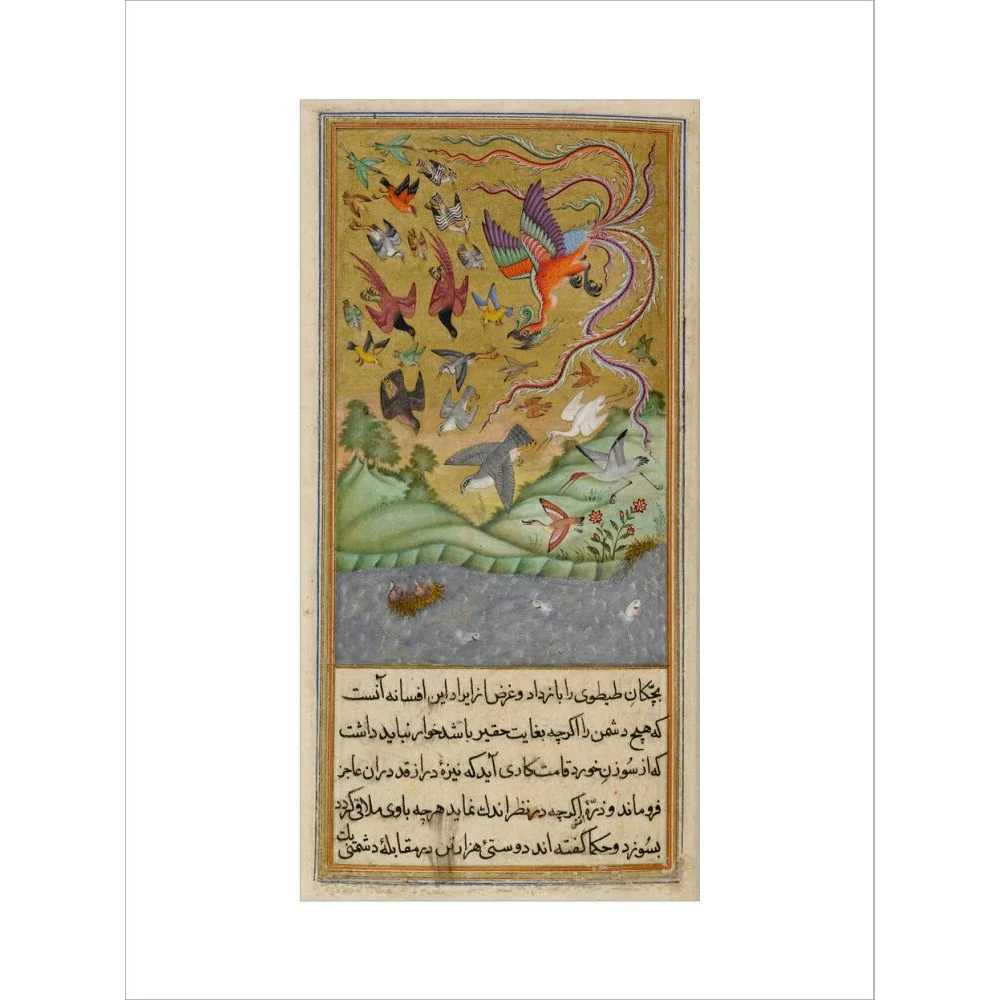 بچّکان طیطوی را باز داد و غرض از ایراد این افسانه آنست
که هیچ دشمن را اکرچه بغایت حقیر باشد خوار نباید داشت
که از سوزن خورد قامت کاری آید که نیزهٔ دراز قد در ان عاجز
فرو ماند و ذرّهٔ آتش اکرچه در نظر اندك نماید هرچه باوی ملاقی کردد
بسوزد و حکما کفته اند دوستیٔ هزار تن در مقابلهٔ دشمنی یك